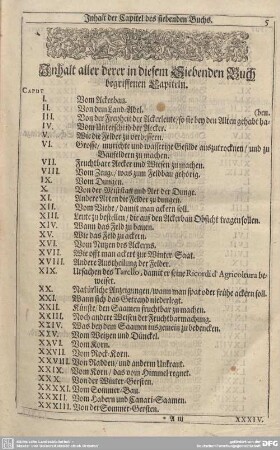 Inhalt der Capitel des siebenden Buchs. 5
Inhalt aller derer in diesem Siebenden Buch
begriffenen Capiteln.
Caput
I. Vom Ackerbau.
II. Von dem Land-Adel. (ben.
III. Von der Freyheit der Ackerleute / so sie bey den Alten gehabt ha-
IV. Vom Unterschied der Aecker.
V. Wie die Felder zu verbessern.
VI. Grosse / unrichte und wässerige Gefilde auszutrocknen / und zu
Baufeldern zu machen.
VII. Fruchtbare Aecker und Wiesen zu machen.
VIII. Vom Zeuge / was zum Feldbau gehörig.
IX. Vom Dungen.
X. Von der Art der Dunge.
XI. Andere Arten die Felder zu dungen.
XII. Vom Viehe / damit man ackern soll.
XIII. Leute zu bestellen / die auf den Ackerbau Obsicht tragen sollen.
XIV. Wann das Feld zu bauen.
XV. Wie das Feld zu ackern.
XVI. Vom Nutzen des Ackerns.
XVII. Wie offt man ackert zur Winter Saat.
XVIII. Andere Austheilung der Felder.
XIX. Ursachen des Tarello, damit er seine Ricordi d' Agricoltura be-
weiset.
XX. Natürliche Anzeigungen / wann man spat oder frühe ackern soll.
XXI. Wann sich das Getrayd niederlegt.
XXII. Künste / den Saamen fruchtbar zu machen.
XXIII. Noch andere Weisen der Fruchtbarmachung.
XXIV. Was bey dem Saamen ins gemein zu bedencken.
XXV. Vom Weitzen und Dünckel.
XXVI. Vom Korn.
XXVII. Vom Rock-Korn.
XXVIII. Von Radden / und anderm Unkraut.
XXIX. Vom Korn / das vom Himmel regnet.
XXX. Von der Winter-Gersten.
XXXI. Vom Sommer-Bau.
XXXII. Vom Habern und Canari-Saamen.
XXXIII. Von der Sommer-Gersten.
A iii XXXIV.